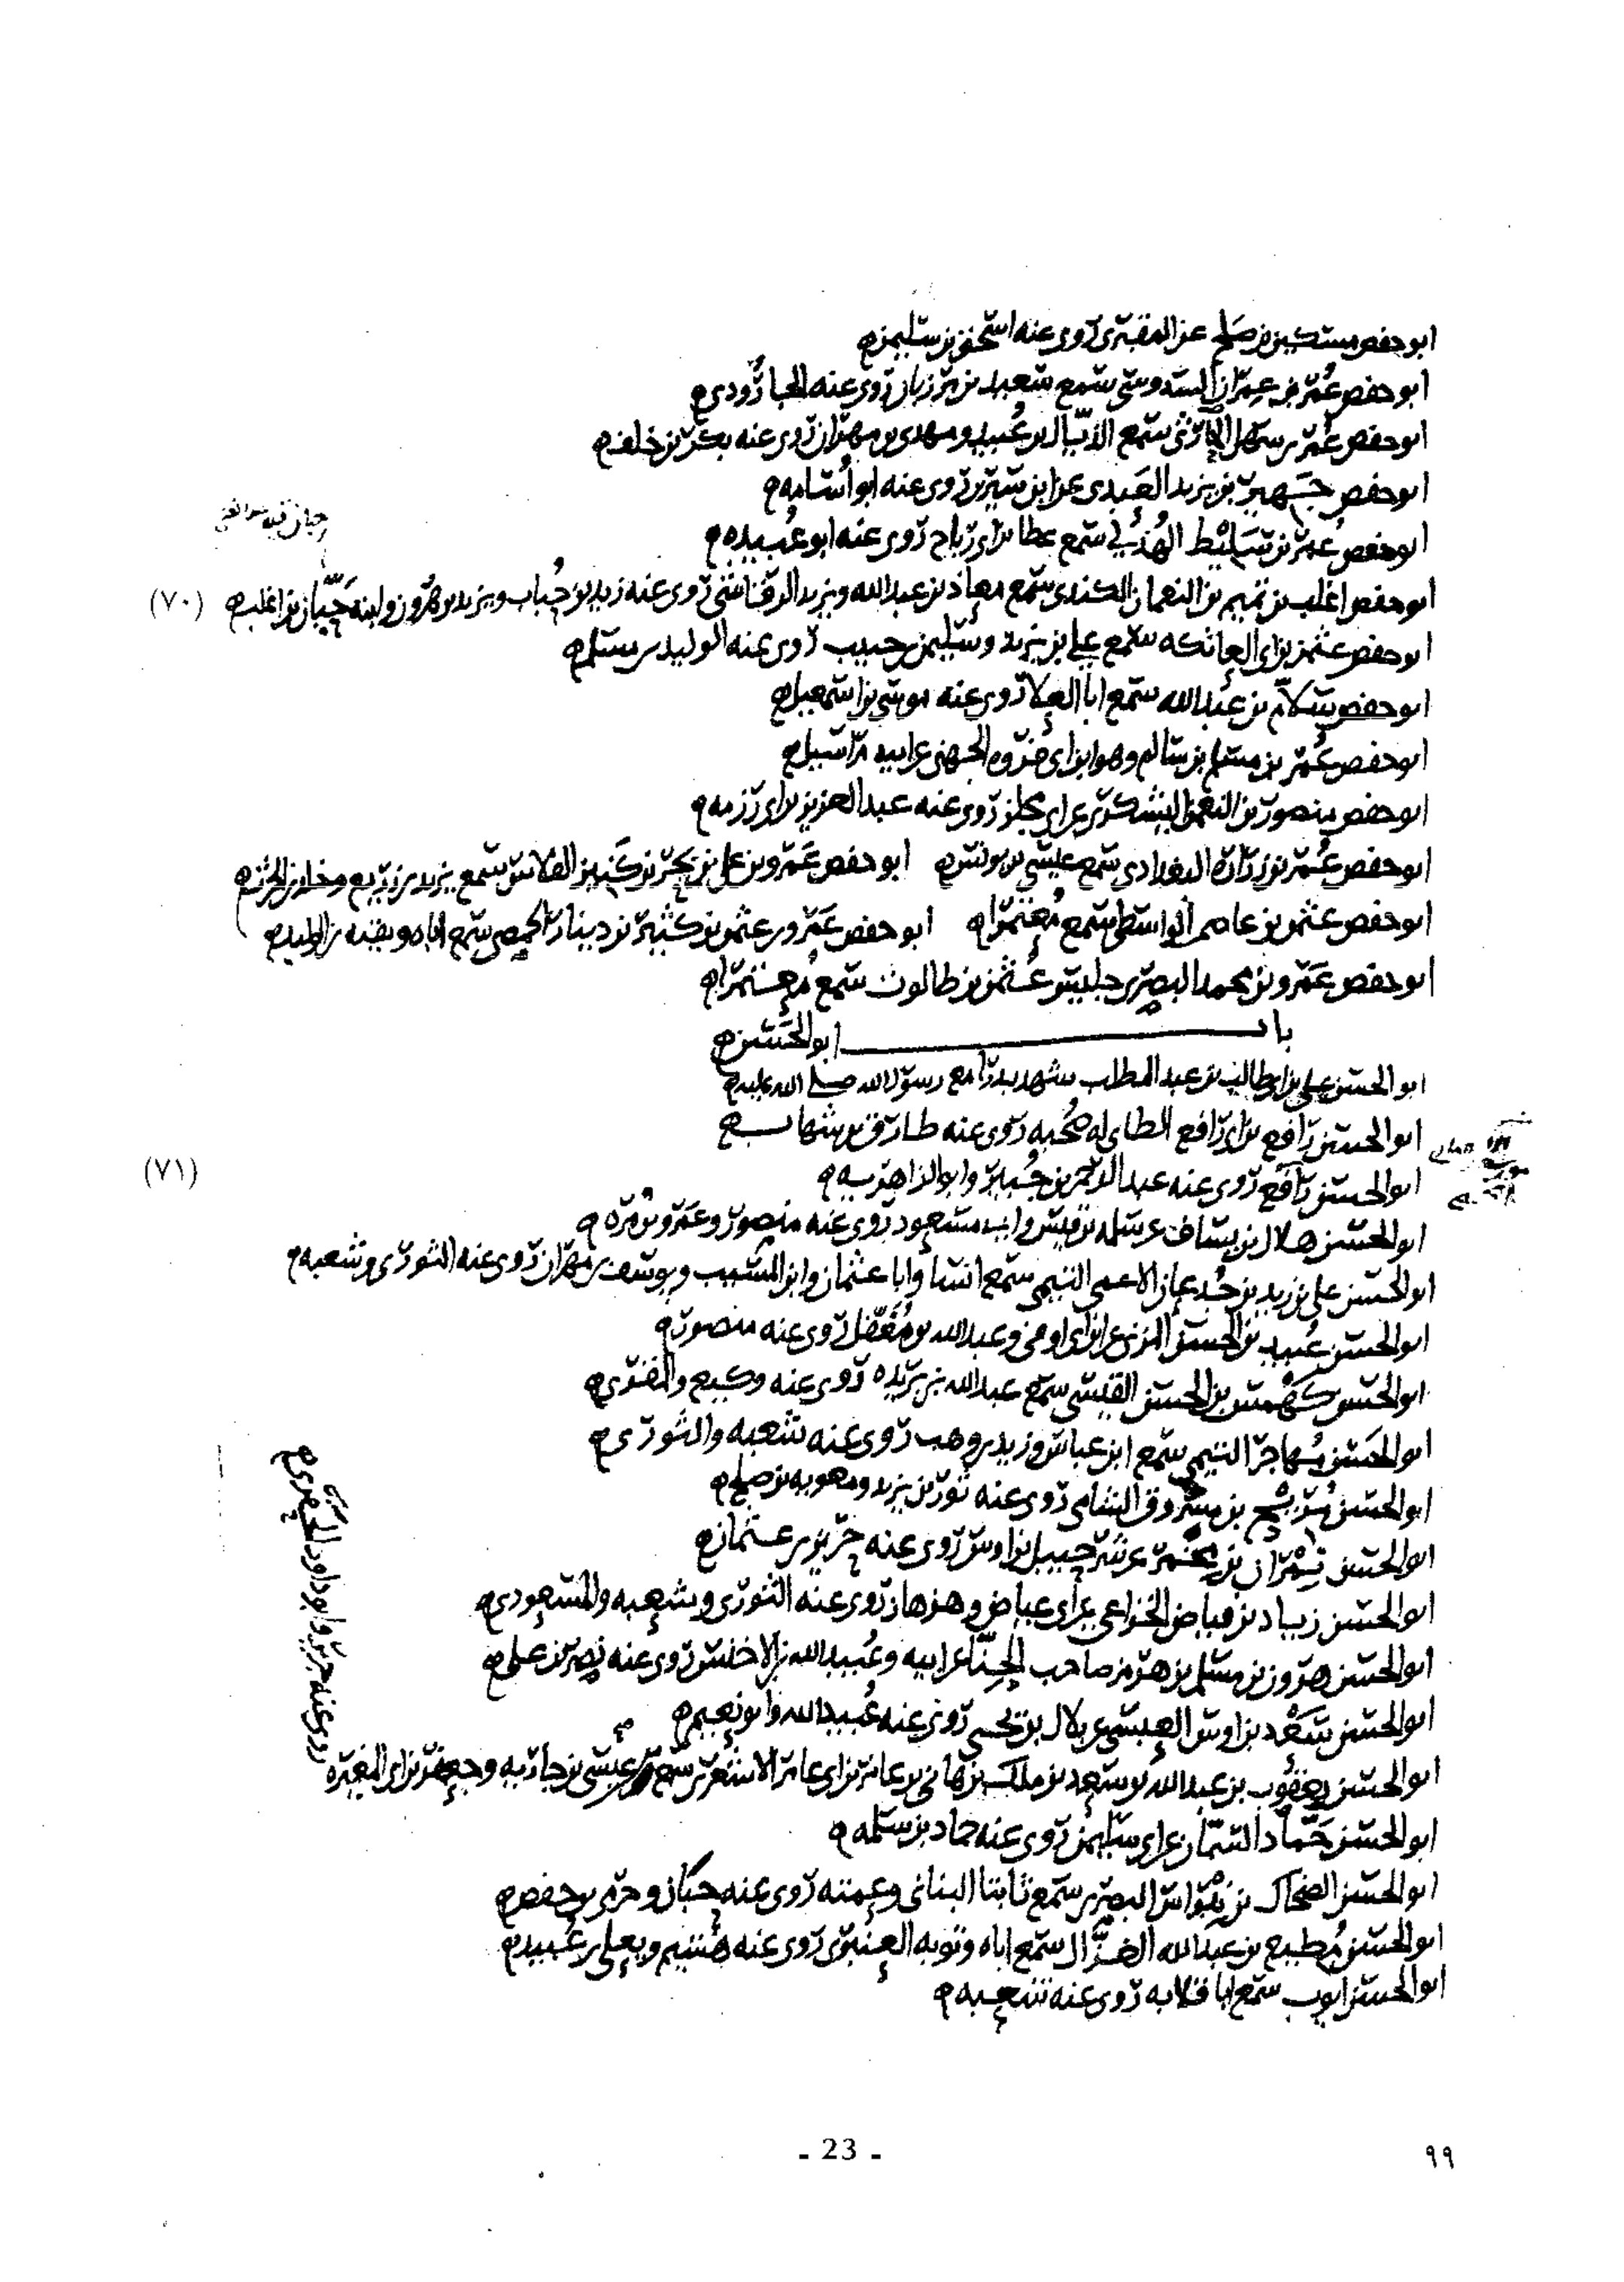 ابو حفص مسكين بن صلح عن المقبري روى عنه اسحق بن سليمن
ابو حفص عُمر بن عِمران السدوسي سمع سعيد بن مرزبان روى عنه الجارودي
ابو حفص عُمر بن سهل المازني سمع الاشبال بن عُبيد ومهدي بن مهران روى عنه بكر بن خلف
ابو حفص جهير بن يزيد العبدي عن ابن سيرين روى عنه ابو اُسامه
ابو حفص عمر بن سَلِيْط الهُذَلي سمع عطا بن ابي رباح روى عنه ابو عُبيده
ابو حفص اغلب بن تميم بن النعمان الكندي سمع معاذ بن عبد الله ويزيد الرقاشي روى عنه زيد بن حُباب ويزيد بن هرون وابنه حَبّان بن اغلب
(٧٠)
ابو حفص عثمن بن ابي العاتكه سمع علي بن يزيد وسليمن بن حبيب روى عنه الوليد بن مسلم
ابو حفص سلاّم بن عبد الله سمع ابا العلا روى عنه موسى بن اسمعيل
ابو حفص عُمر بن مسلم بن سالم وهو ابن ابي فروه الجهني عن ابيه مراسيل
ابو حفص منصور بن النعمن اليشكري عن ابي مجلز روى عنه عبد العزيز بن ابي رزمه
ابو حفص عُمر بن زراره البغدادي سمع عيسى بن يونس ابو حفص عَمرو بن علي بن بحر بن كَنيز الفلاس سمع يزيد بن زريع وخلد بن الحرث
ابو حفص عثمن بن عاصم الواسطي سمع مُعتمرا ابو حفص عَمرو بن عثمن بن كثير بن دينار الحمصي سمع اباه وبقيه بن الوليد
ابو حفص عَمرو بن محمد البصري جليس عُثمن بن طالوت سمع مُعتمرا
باب ابو الحَسَن
ابو الحسن علي بن ابي طالب بن عبد المطلب شهد بدرا مع رسول الله صلى الله عليه
ابو الحسن رافع بن ابي رافع الطاي له صُحبه روى عنه طارق بن شهاب
ابو الحسن رافع روى عنه عبد الرحمن بن جُبير وابو الزاهريه
(٧١)
ابو الحسن هلال بن يساف عن سلمه بن قيس وابي مسعود روى عنه منصور وعَمرو بن مُره
ابو الحسن علي بن زيد بن جُدعان الاعمى التيمي سمع انسا وابا عثمان وابن المسيب ويوسف بن مهران روى عنه الثوري وشعبه
ابو الحسن عُبيد بن الحسن المزني عن ابن ابي اوفى وعبد الله بن مُغَفّل روى عنه منصور
ابو الحسن كَهْمس بن الحسن القيسي سمع عبد الله بن بريده روى عنه وكيع والمقري
ابو الحَسَن مُهاجر التيمي سمع ابن عباس وزيد بن وهب روى عنه شعبه والثوري
ابو الحسن سُريج بن مسروق الشامي روى عنه ثور بن يزيد ومعويه بن صلح
ابو الحسن نِمْران بن مخمر عن شرحبيل بن اوس روى عنه حريز بن عثمان
ابو الحسن زياد بن فياض الخزاعي عن ابي عياض وهزهاز روى عنه الثوري وشعبه والمسعودي
ابو الحسن هرون بن مسلم بن هرمز صاحب الحِنّا عن ابيه وعُبيد الله بن الاخنس روى عنه نصر بن علي
ابو الحسن سَعْد بن اوس العبسي عن بلال بن يحيى روى عنه عُبيد الله وابو نُعيم
ابو الحسن يعقوب بن عبد الله بن سعد بن ملك بن هاني بن عامر بن ابي عامر الاشعري سمع عيسى بن جاريه وجعفر بن ابي المغيره
روى عنه جرير وابو داود الحَفَري
ابو الحسن حَمّاد السمان عن ابي سليمن روى عنه حماد بن سلمه
ابو الحسن الضحاك بن نِبْراس البصري سمع ثابتا البناني وعمته روى عنه حبان وحرمي بن حفص
ابو الحسن مُطيع بن عبد الله الغَزّال سمع اباه وتوبه العنبري روى عنه هُشيم ويعلى بن عُبيد
ابو الحسن ايوب سمع ابا قلابه روى عنه شعبه
- 23 -
٩٩